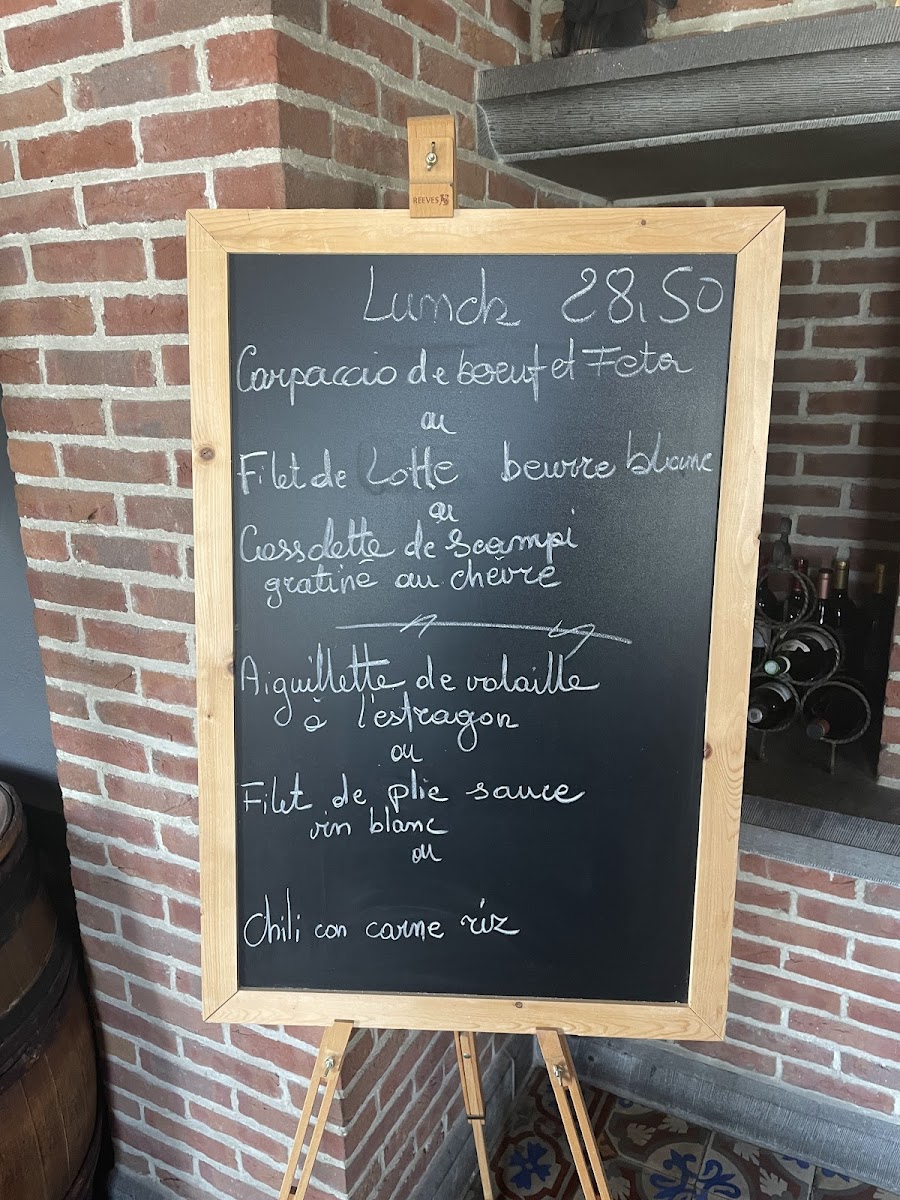 REEVES
Lunch 28,50
Carpaccio de boeuf et Feta
ou
Filet de Lotte beurre blanc
ou
Cassolette de Scampi
gratiné au chèvre
Aiguillette de volaille
à l'estragon
ou
Filet de plie sauce
vin blanc
ou
Chili con carne riz